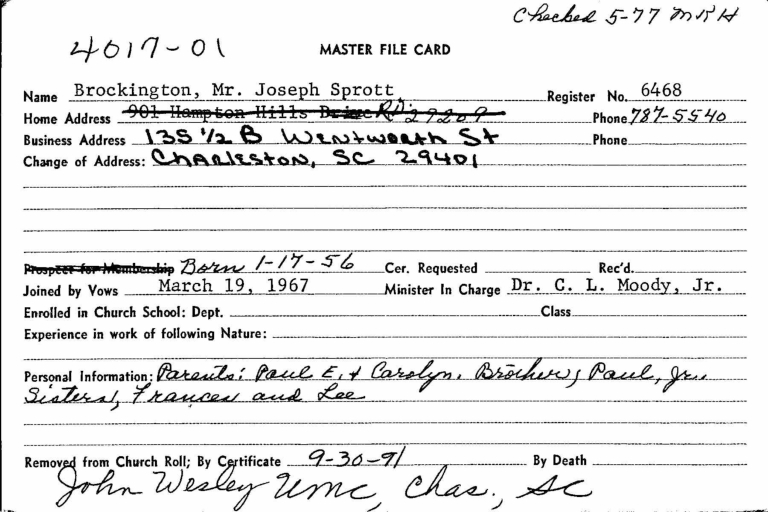 Checked 5-77 MRH
4017-01
MASTER FILE CARD
Name Brockington, Mr. Joseph Sprott Register No. 6468
Home Address 901 Hampton Hills Drive Rd. 29209 Phone 787-5540
Business Address 135 1/2 B Wentworth St Phone
Change of Address: Charleston, SC 29401
Prospect for Membership Born 1-17-56 Cer. Requested Rec'd.
Joined by Vows March 19, 1967 Minister In Charge Dr. C. L. Moody, Jr.
Enrolled in Church School: Dept. Class
Experience in work of following Nature:
Personal Information: Parents: Paul E. & Carolyn. Brother, Paul, Jr.
Sisters, Frances and Lee
Removed from Church Roll; By Certificate 9-30-91 By Death
John Wesley UMC, Chas., SC